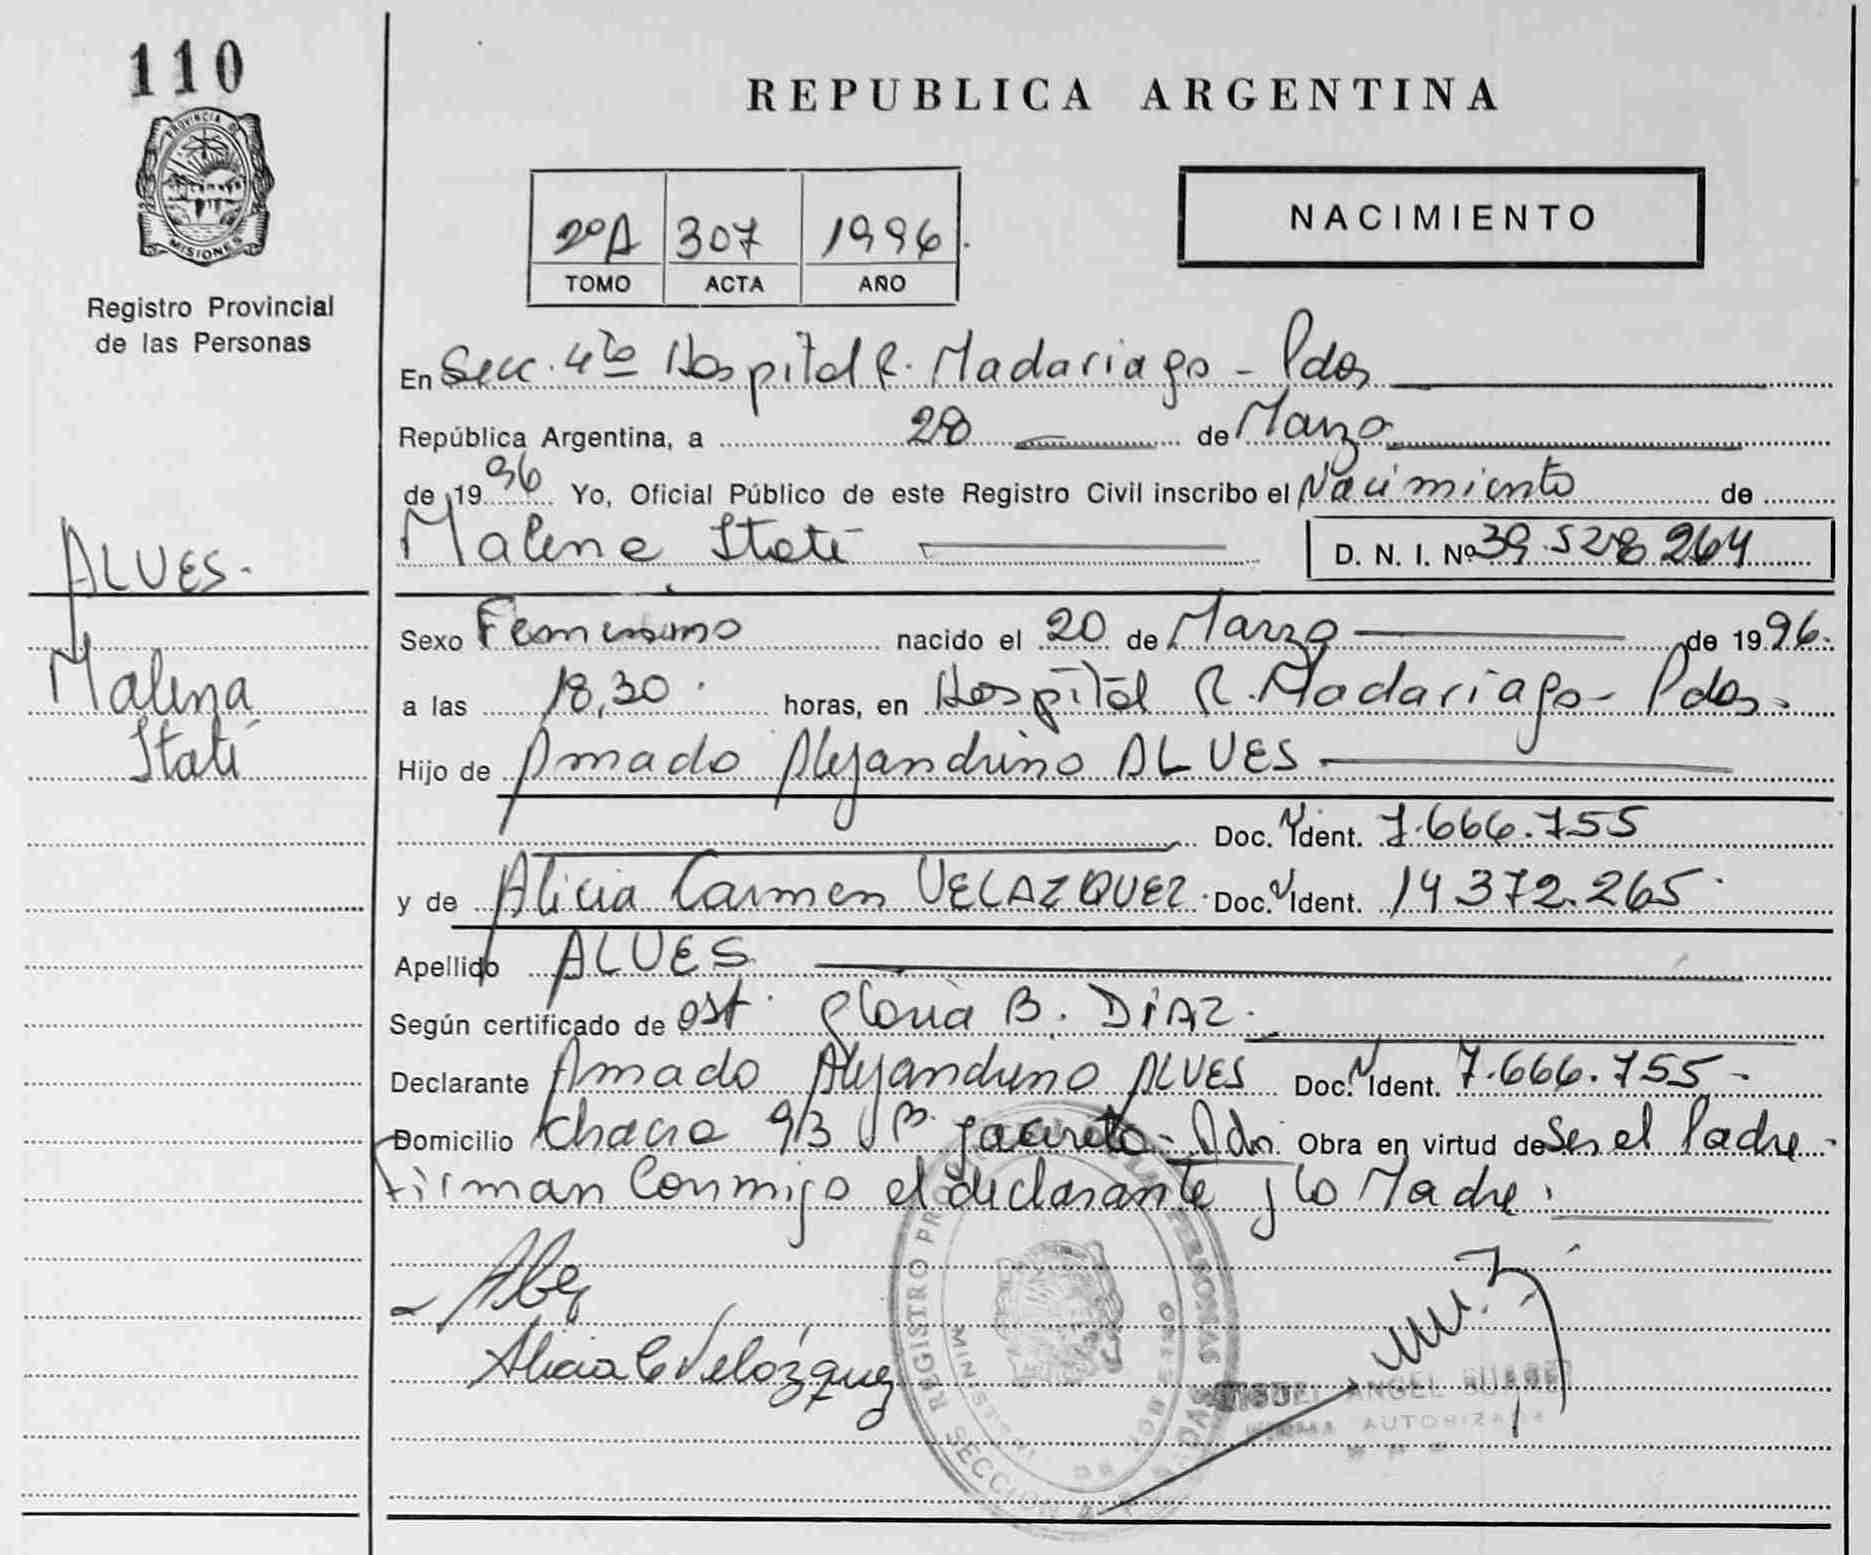 110
PROVINCIA DE
MISIONES
Registro Provincial
de las Personas
REPUBLICA ARGENTINA
2ºA 307 1996
TOMO ACTA AÑO
NACIMIENTO
En Secc. 4ta Hospital R. Madariaga - Pdas
República Argentina, a 28 de Marzo
de 1996 Yo, Oficial Público de este Registro Civil inscribo el Nacimiento de
Malena Itatí D. N. I. Nº 39.528.264
ALVES.
Malena
Itatí
Sexo Femenino nacido el 20 de Marzo de 1996.
a las 18,30 horas, en Hospital R. Madariaga - Pdas.
Hijo de Amado Alejandrino ALVES
Doc. Ident. 7.666.755
y de Alicia Carmen VELAZQUEZ. Doc. Ident. 14.372.265.
Apellido ALVES
Según certificado de ost. Gloria B. DIAZ.
Declarante Amado Alejandrino ALVES Doc. Ident. 7.666.755-
Domicilio Chacra 93 Bº Yacireta - Pdas. Obra en virtud de Ser el Padre.
Firman Conmigo el declarante y la Madre.
Alicia C Velázquez
REGISTRO DE LAS PERSONAS
SECCION
MIGUEL ANGEL SUAREZ
FIRMA AUTORIZADA